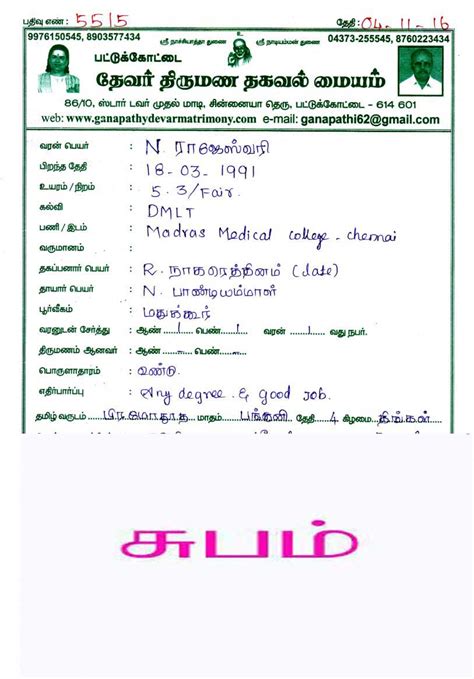 பதிவு எண் : 5515 தேதி : 04-11-16
9976150545, 8903577434 ஸ்ரீ நாச்சியாத்தா துணை ஸ்ரீ நாடியம்மன் துணை 04373-255545, 8760223434
பட்டுக்கோட்டை
தேவர் திருமண தகவல் மையம்
86/10, ஸ்டார் டவர் முதல் மாடி, சின்னையா தெரு, பட்டுக்கோட்டை - 614 601
web: www.ganapathydevarmatrimony.com e-mail: ganapathi62@gmail.com
வரன் பெயர் : N. ராஜேஸ்வரி
பிறந்த தேதி : 18-03-1991
உயரம் / நிறம் : 5.3/Fair.
கல்வி : DMLT
பணி / இடம் : Madras Medical college - chennai
வருமானம் :
தகப்பனார் பெயர் : R. நாகரெத்தினம் (late)
தாயார் பெயர் : N. பாண்டியம்மாள்
பூர்வீகம் : மதுக்கூர்
வரனுடன் சேர்த்து : ஆண் 1 பெண் 1 வரன் 1 வது நபர்.
திருமணம் ஆனவர் : ஆண் - பெண் -
பொருளாதாரம் : உண்டு.
எதிர்பார்ப்பு : Any degree & good job.
தமிழ் வருடம் பிரமோதூத மாதம் பங்குனி தேதி 4 கிழமை திங்கள்
சுபம்